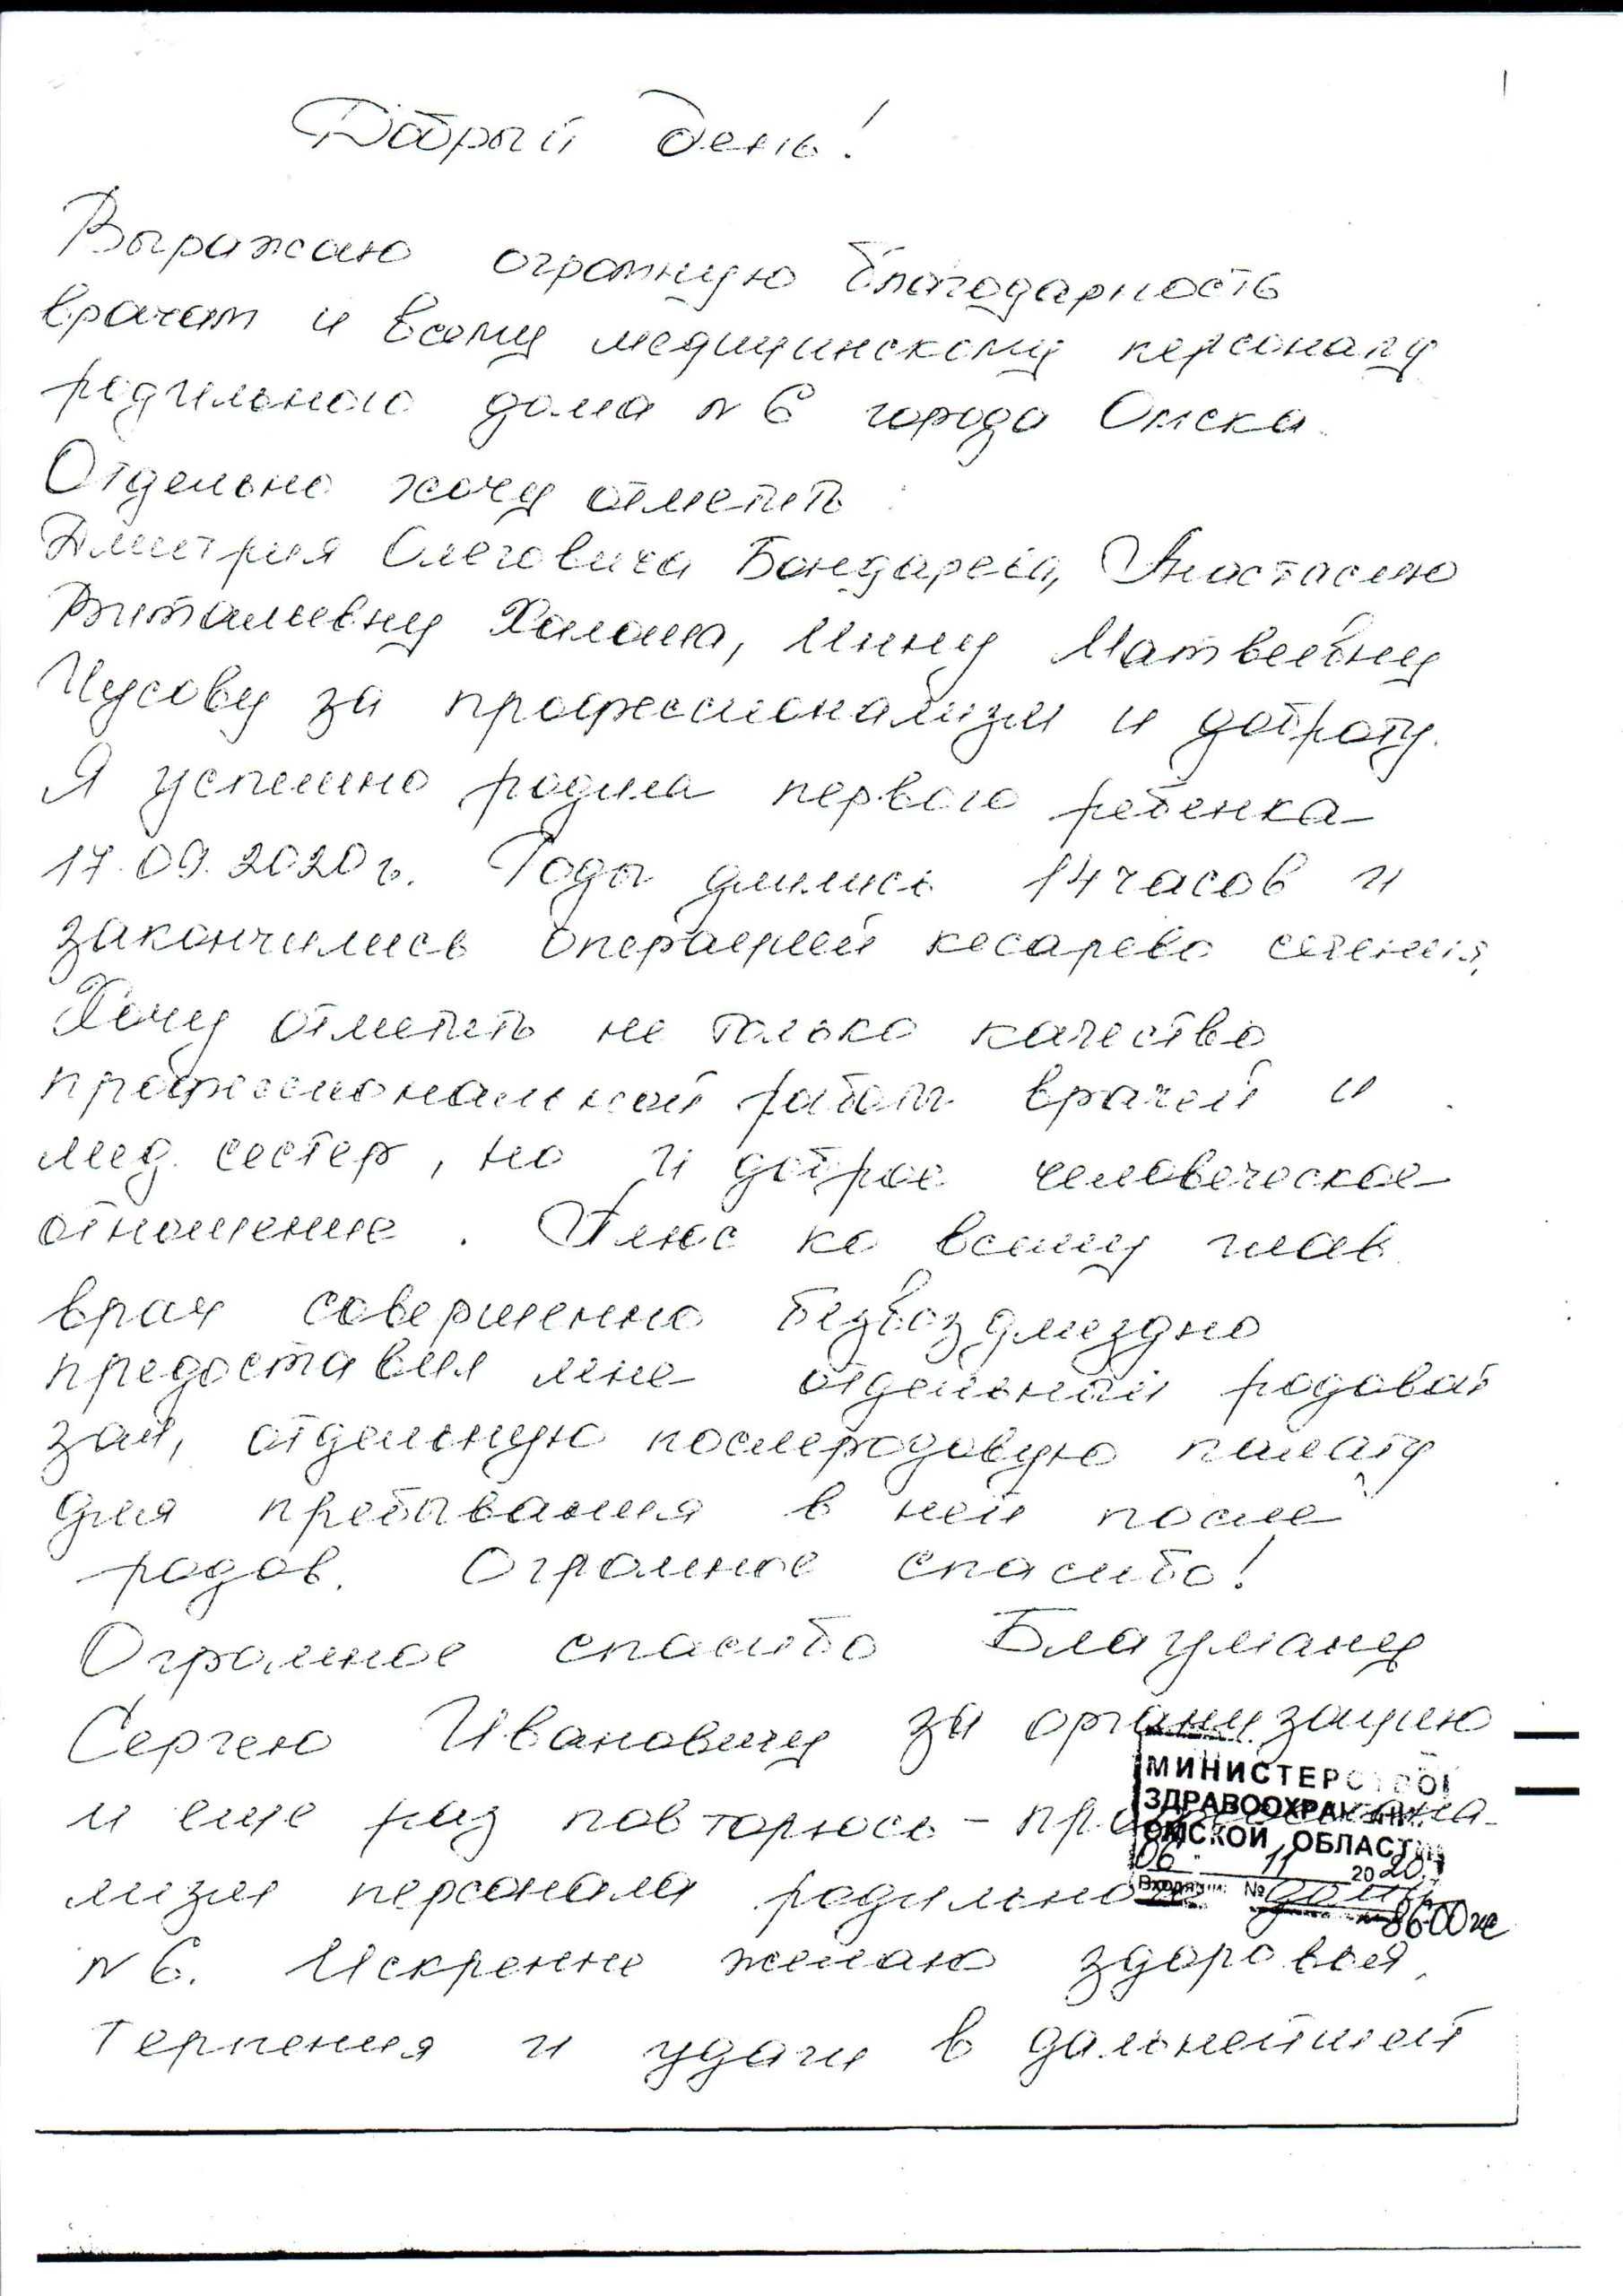 Добрый день!
Выражаю огромную благодарность
врачам и всему медицинскому персоналу
родильного дома № 6 города Омска.
Отдельно хочу отметить:
Дмитрия Олеговича Бондарева, Анастасию
Витальевну Халаша, Инну Матвеевну
Чусову за профессионализм и доброту.
Я успешно родила первого ребенка
17.09.2020г. Роды длились 14 часов и
закончились операцией кесарево сечения.
Хочу отметить не только качество
профессиональной работы врачей и
мед. сестер, но и доброе человеческое
отношение. Плюс ко всему глав.
врач совершенно безвозмездно
предоставил мне отдельный родовой
зал, отдельную послеродовую палату
для пребывания в ней после
родов. Огромное спасибо!
Огромное спасибо Блауману
Сергею Ивановичу за организацию
и еще раз повторюсь - профессиона-
лизм персонала родильного дома
№ 6. Искренне желаю здоровья,
терпения и удачи в дальнейшей
МИНИСТЕРСТВО
ЗДРАВООХРАНЕНИЯ
ОМСКОЙ ОБЛАСТИ
06 11 2020
Входящий №